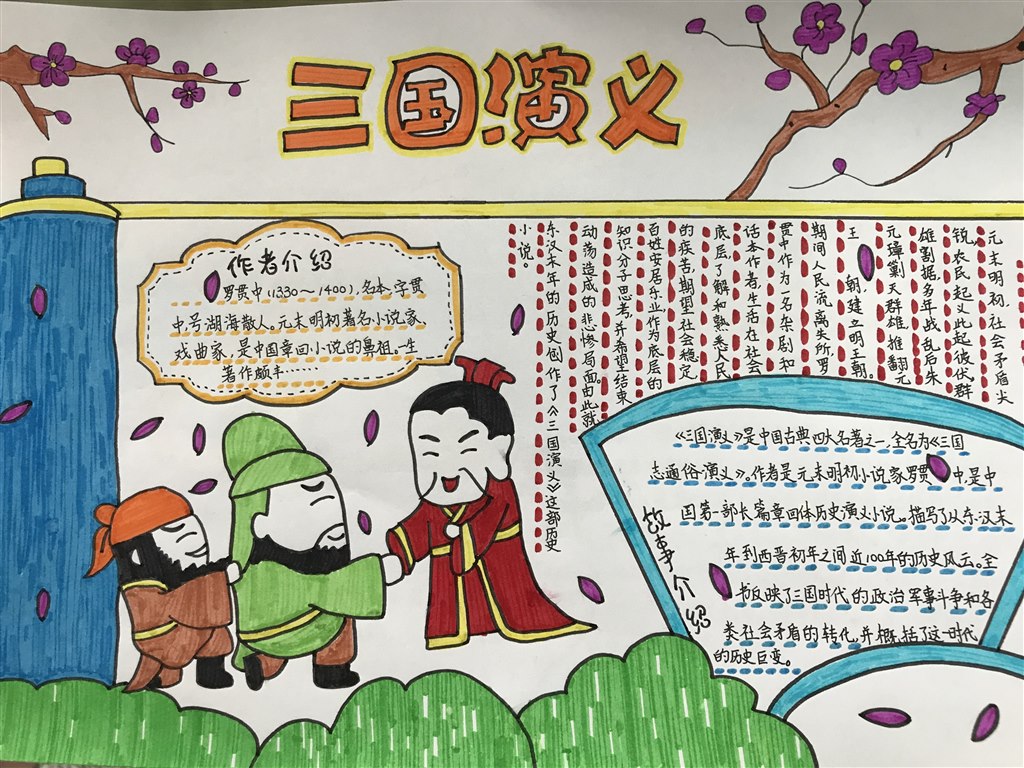 三国演义
作者介绍
罗贯中(1330～1400),名本,字贯
中,号湖海散人。元末明初著名小说家
戏曲家,是中国章回小说的鼻祖,一生
著作颇丰……
元末明初,社会矛盾尖
锐,农民起义此起彼伏群
雄割据,多年战乱后朱
元璋剿灭群雄推翻元
王朝,建立明王朝。
期间人民流离失所罗
贯中作为一名杂剧和
话本作者,生活在社会
底层,了解和熟悉人民
的疾苦,期望社会稳定
百姓安居乐业作为底层的
知识分子思考,并希望结束
动荡造成的悲惨局面。由此就
东汉末年的历史创作了《三国演义》这部历史
小说。
故事介绍
《三国演义》是中国古典四大名著之一,全名为《三国
志通俗演义》。作者是元末明初小说家罗贯中,是中
国第一部长篇章回体历史演义小说。描写了从东汉末
年到西晋初年之间近100年的历史风云。全
书反映了三国时代的政治军事斗争和各
类社会矛盾的转化,并概括了这一时代
的历史巨变。